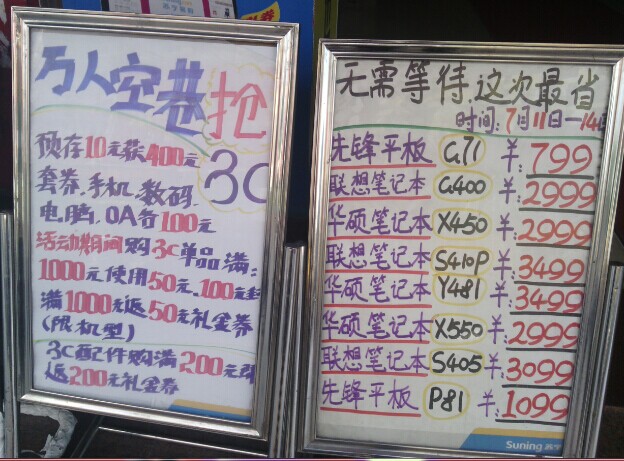 万人空巷抢
3C
预存10元获400元
套券.手机.数码.
电脑.OA各100元
活动期间购3C单品满:
1000元使用50元.100元起
满1000元返50元礼金券
(限机型)
3C配件购满200元即
返200元礼金券
无需等待.这次最省
时间:7月11日-14日
先锋平板 G71 ¥:799
联想笔记本 G400 ¥:2999
华硕笔记本 X450 ¥:2999
联想笔记本 S410P ¥:3499
华硕笔记本 Y481 ¥:3499
华硕笔记本 X550 ¥:2999
联想笔记本 S405 ¥:3099
先锋平板 P81 ¥:1099
Suning 苏宁